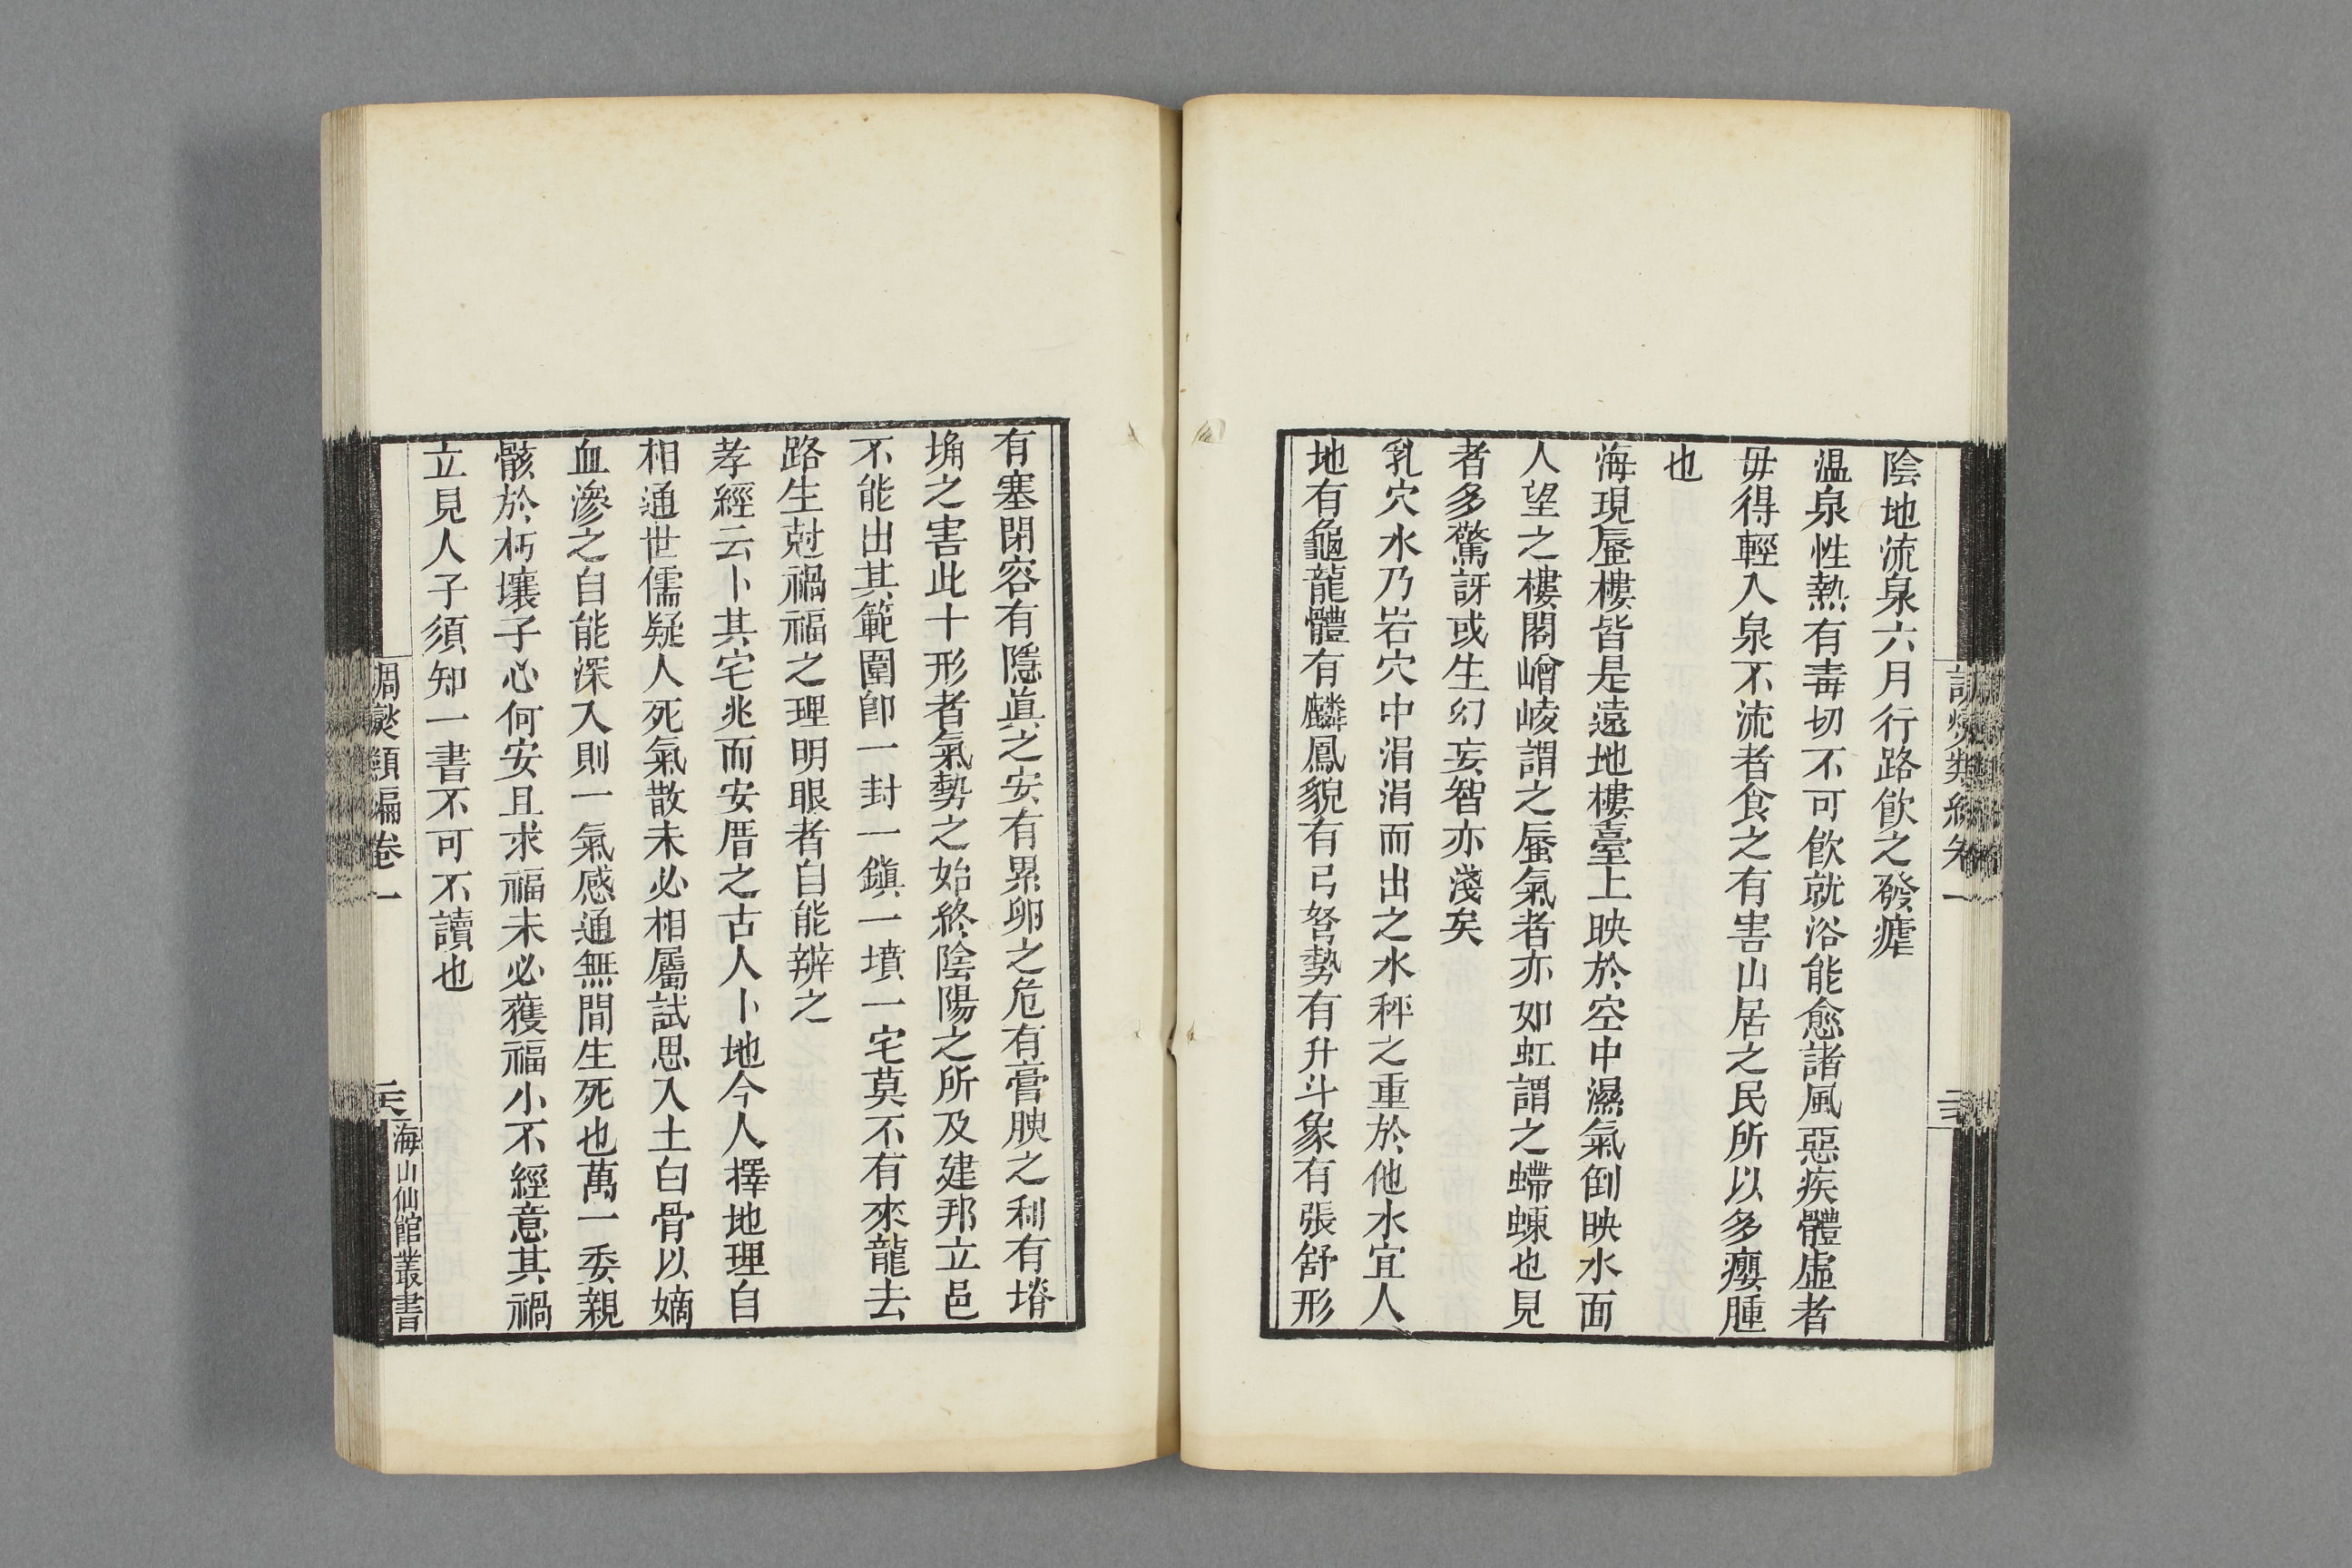 陰地流泉六月行路飮之發瘧
温泉性熱有毒切不可飮就浴能愈諸風惡疾體虛者
毋得輕入泉不流者食之有害山居之民所以多癭腫
也
海現蜃樓皆是遠地樓臺上映於空中濕氣倒映水面
人望之樓閣嶒崚謂之蜃氣者亦如虹謂之螮蝀也見
者多驚訝或生幻妄智亦淺矣
乳穴水乃岩穴中涓涓而出之水秤之重於他水宜人
地有龜龍體有麟鳳貌有弓弩勢有升斗象有張舒形
有塞閉容有隱眞之安有累卵之危有膏腴之利有塉
埆之害此十形者氣勢之始終陰陽之所及建邦立邑
不能出其範圍卽一封一鎭一墳一宅莫不有來龍去
路生尅禍福之理明眼者自能辨之
孝經云卜其宅兆而安厝之古人卜地今人擇地理自
相通世儒疑人死氣散未必相屬試思入土白骨以嫡
血滲之自能深入則一氣感通無間生死也萬一委親
骸於朽壤子心何安且求福未必獲福小不經意其禍
立見人子須知一書不可不讀也
調燮類編卷一
海山仙館叢書